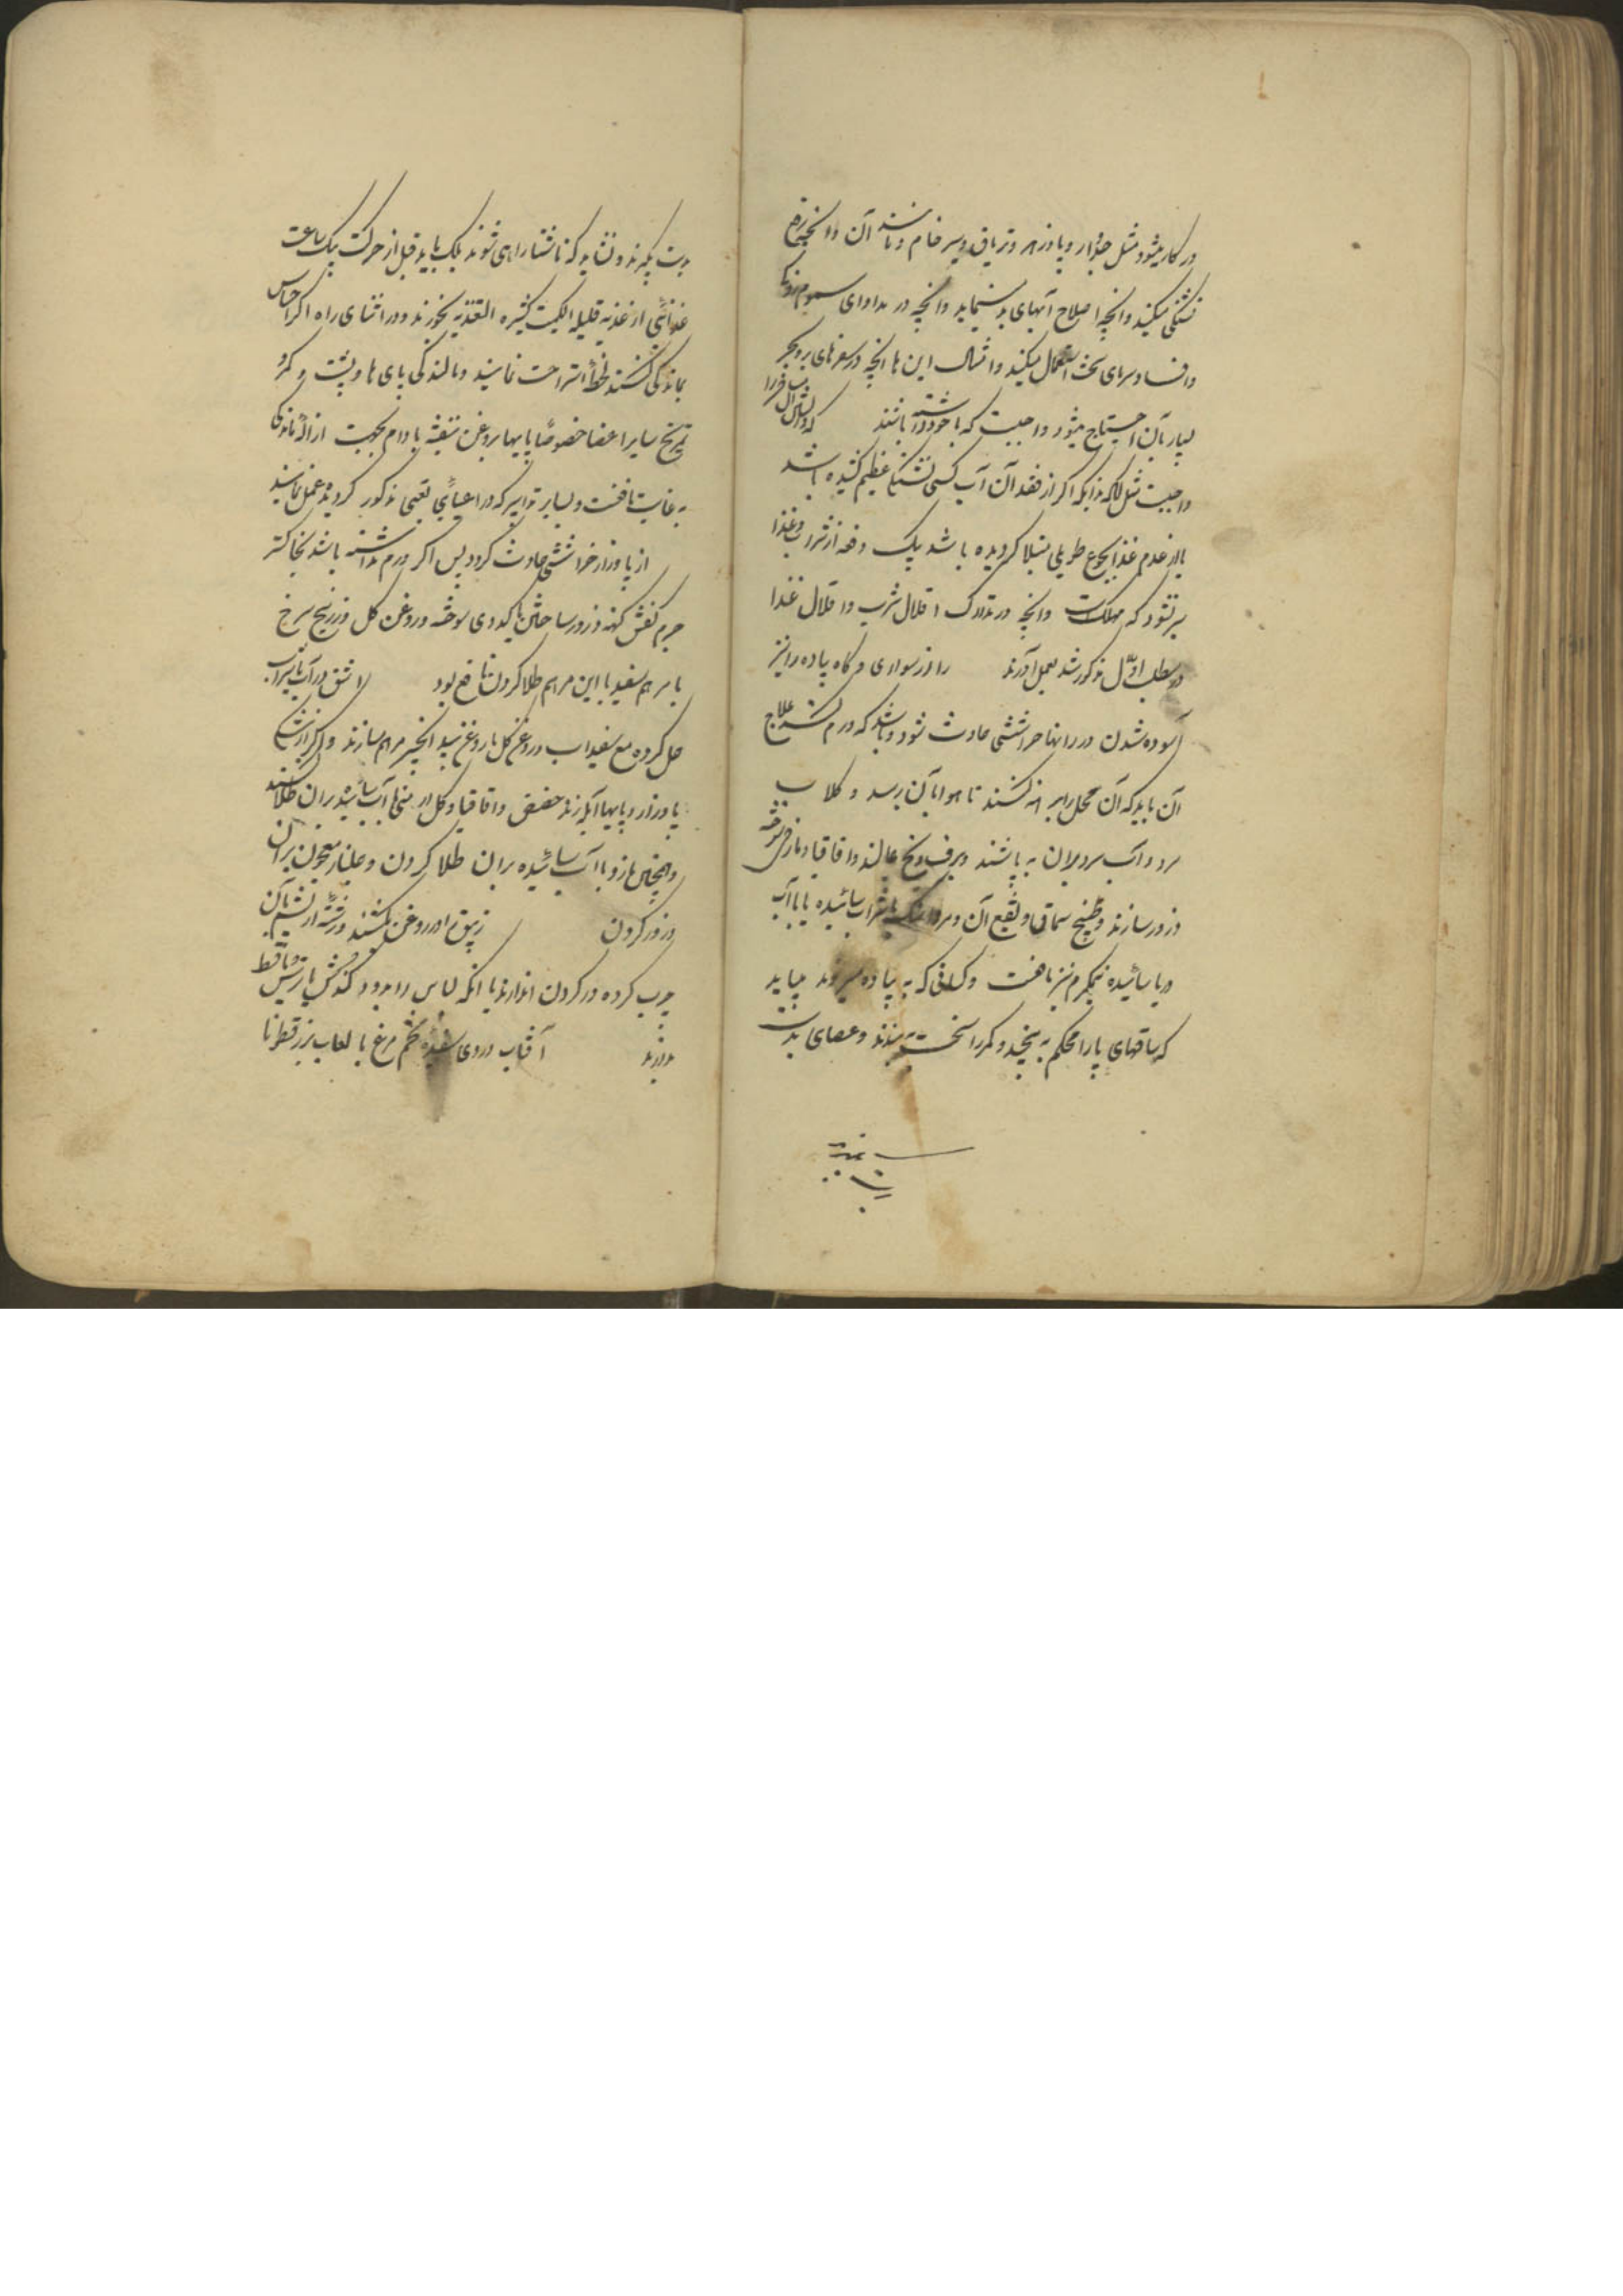 در کار میشود مثل جدوار و پادزهر و تریاق و سیر خام و مانند آن و انچه رفع
تشنگی میکند و انچه اصلاح آبهای بد مینماید و انچه در مداوای سموم
و افساد سرمای سخت استعمال میکنند و امثال این ها انچه در سفرهای بر و بحر
بسیار بآن احتیاج میشود واجبست که با خود داشته باشند
واجبست مثل انکه اگر از فقدان آب کسی تشنگی عظیم کشیده باشد
یا از عدم غذا بجوع طویلی مبتلا گردیده باشد یک دفعه از شراب و غذا
سیر نشود که مهلکست و انچه در تدارک اقلال شرب و اقلال غذا
در مطلب اوّل مذکور شد بعمل آورند را از سواری و گاه پیاده را نیز
آسوده شدن در رانها خراشیدگی حادث شود و باشد که ورم کند علاج
آن باید که آن محل را برهنه کنند تا هوا بآن رسد و گلاب
سرد و آب سرد بران به پاشند و برف و یخ بمالند و اقاقیا و مازوی سوخته
ذرور سازند و طبیخ سماق و نقیع آن و مرداسنگ با شراب سائیده یا با آب
دریا سائیده نیمگرم نیز نافعست و کسانی که به پیاده میروند میباید
که ساقهای پا را محکم به پیچند و کمر را سخت به بندند و عصای بدست
بدست گیرند و نشاید که ناشتا راهی شوند بلکه باید قبل از حرکت بیک ساعت
غذائی از اغذیه قلیله الکمیت کثیره التغذیه بخورند و در اثنای راه اگر احساس
بماندگی کنند لحظهٔ استراحت نمایند و مالندگی پای ها و پشت و کمر
تمریخ سایر اعضا خصوصًا پایها بروغن بنفشه بادام بجهت ازالهٔ ماندگی
به غایت نافعست و بسایر تدابیر که در اعیای تعبی مذکور گردیده عمل نمایند
از پا وزار خراشیدگی حادث گردد پس اگر ورم نداشته باشد بخاکستر
جرم کفش کهنه ذرور ساختن یا کدوی سوخته و روغن گل و زرنیخ سرخ
یا مرهم سفید با این مرهم طلا کردن نافع بود اشق در آب یا سراب
حل کرده مع سفیداب و روغن گل یا روغن بید انجیر مرهم سازند و اگر از
پا وزار و پایها آبله زند حضض و اقاقیا و گل ارمنی با آب سائیده بران طلا کنند
و همچنان مازو با آب سائیده بران طلا کردن و گلنار معجون بران
ذرور کردن زیبق را در روغن بکشند و رشتهٔ از پشم بآن
چرب کرده در گردن اندازند یا انکه لباس را بدود کندش
بدارند آفتاب در روی سفیدهٔ تخم مرغ با لعاب بزرقطونا